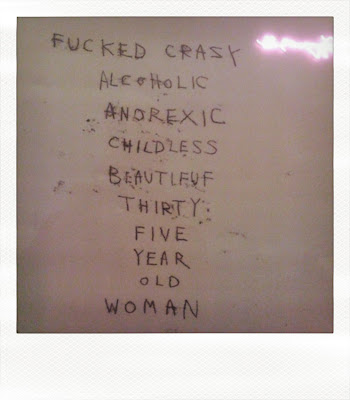 FUCKED CRASY
ALCOHOLIC
ANOREXIC
CHILDLESS
BEAUTIFUF
THIRTY
FIVE
YEAR
OLD
WOMAN